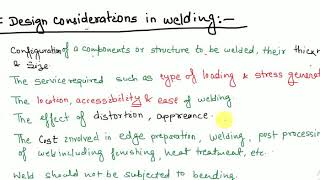 Design considerations in welding:-
Configuration of a components or structure to be welded, their thickn
& size
The service required such as type of loading & stress generat
The location, accessability & ease of welding
The effect of distortion, appreance.
The cost involved in edge preparation, welding, post processing
of weld including finishing, heat treatment, etc..
Weld should not be subjected to bending.